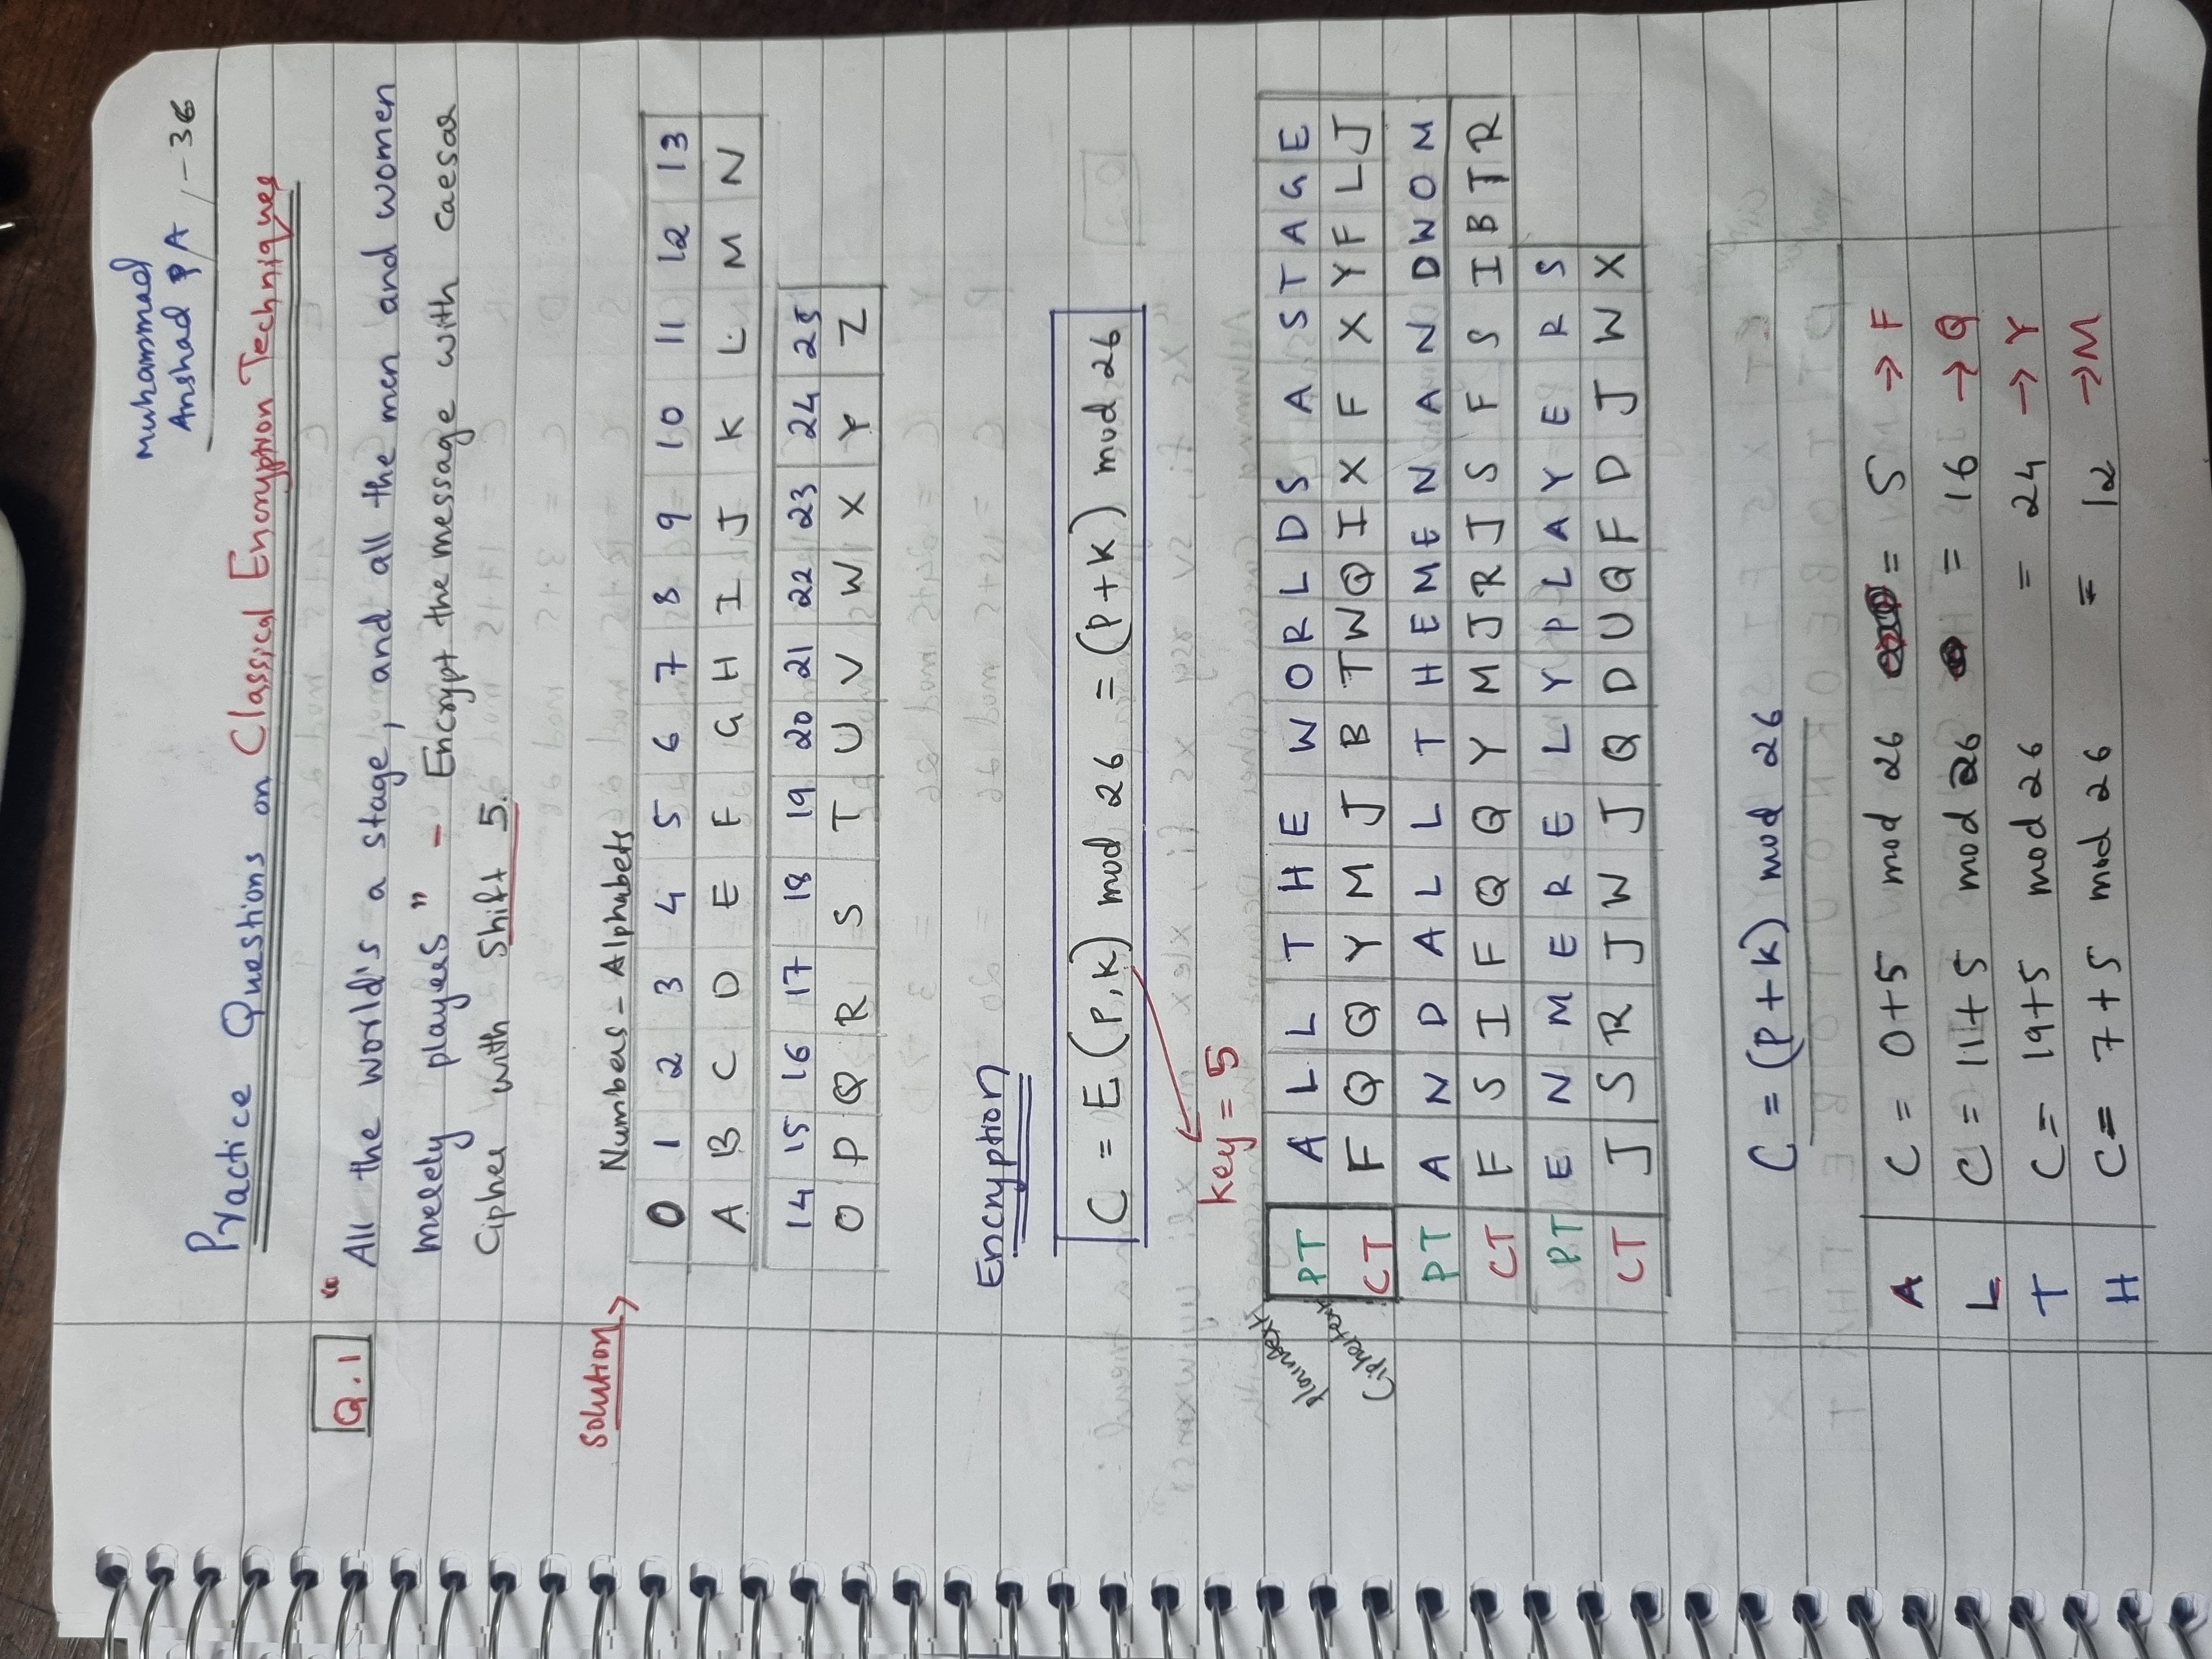 Muhammad
Anshad P A - 36
Practice Questions on Classical Encryption Techniques
Q.1 "All the world's a stage, and all the men and women
merely players" - Encrypt the message with caesar
Cipher with Shift 5.
Solution →
Numbers - Alphabets
0 1 2 3 4 5 6 7 8 9 10 11 12 13
A B C D E F G H I J K L M N
14 15 16 17 18 19 20 21 22 23 24 25
O P Q R S T U V W X Y Z
Encryption
C = E (P, K) mod 26 = (P + K) mod 26
key = 5
Plaintext PT A L L T H E W O R L D S A S T A G E
Ciphertext CT F Q Q Y M J B T W Q I X F X Y F L J
PT A N D A L L T H E M E N A N D W O M
CT F S I F Q Q Y M J R J S F S I B T R
PT E N M E R E L Y P L A Y E R S
CT J S R J W J Q D U Q F D J W X
C = (P + K) mod 26
A C = 0+5 mod 26 = 5 → F
L C = 11+5 mod 26 = 16 → Q
T C = 19+5 mod 26 = 24 → Y
H C = 7+5 mod 26 = 12 → M